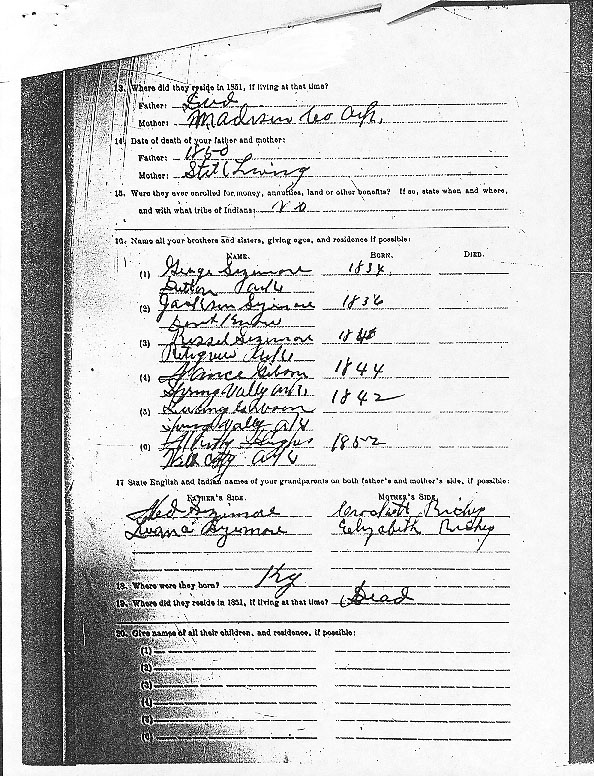 13. Where did they reside in 1851, if living at that time?
Father: Ded
Mother: Madison Co Ark.
14. Date of death of your father and mother:
Father: 1850
Mother: Still Living
15. Were they ever enrolled for money, annuities, land or other benefits? If so, state when and where,
and with what tribe of Indians: No
16. Name all your brothers and sisters, giving ages, and residence if possible:
NAME. BORN. DIED.
(1) George Sizemore 1834
Ark
(2) Jackson Sizmore 1836
(3) Russel Sizemore 18
Petigrew Ark
(4) Gibson 1844
Spring Vally Ark
(5) 1842
Spring Vally Ark
(6) 1852
Ark
17 State English and Indian names of your grandparents on both father's and mother's side, if possible:
FATHER'S SIDE. MOTHER'S SIDE
Ned Sizimore Crockett Richie
Sizemore Elizabeth Richie
18. Where were they born? Ky
19. Where did they reside in 1851, if living at that time? Dead
20. Give names of all their children, and residence, if possible:
(1)
(2)
(3)
(4)
(5)
(6)